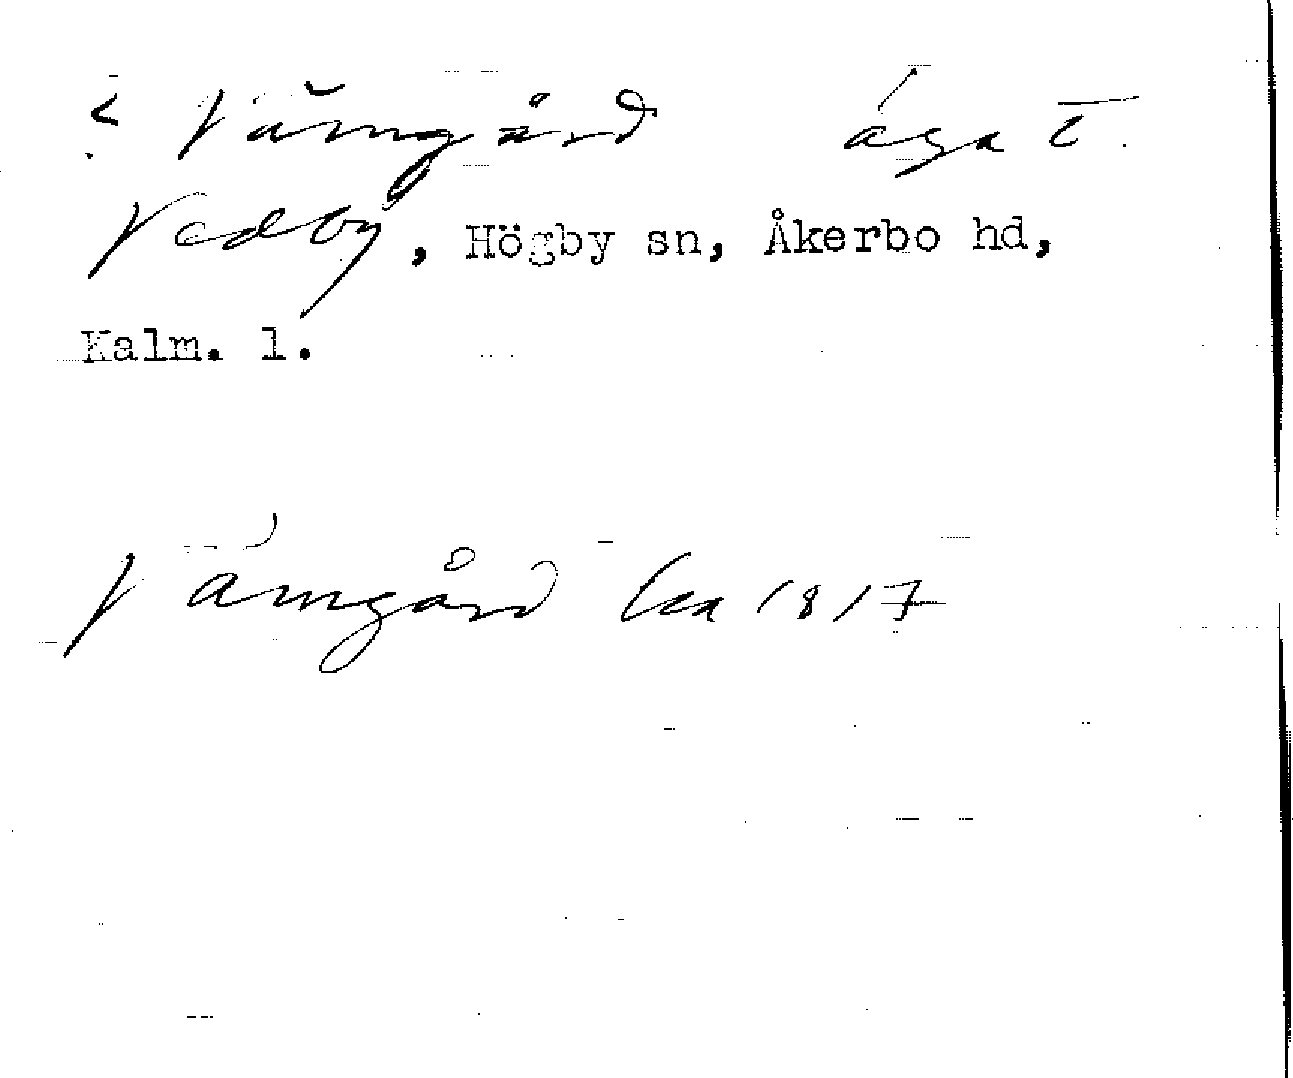 Vämgård äga t.
Vedby, Högby sn, Åkerbo hd,
Kalm. l.
Vämgård Lm 1817